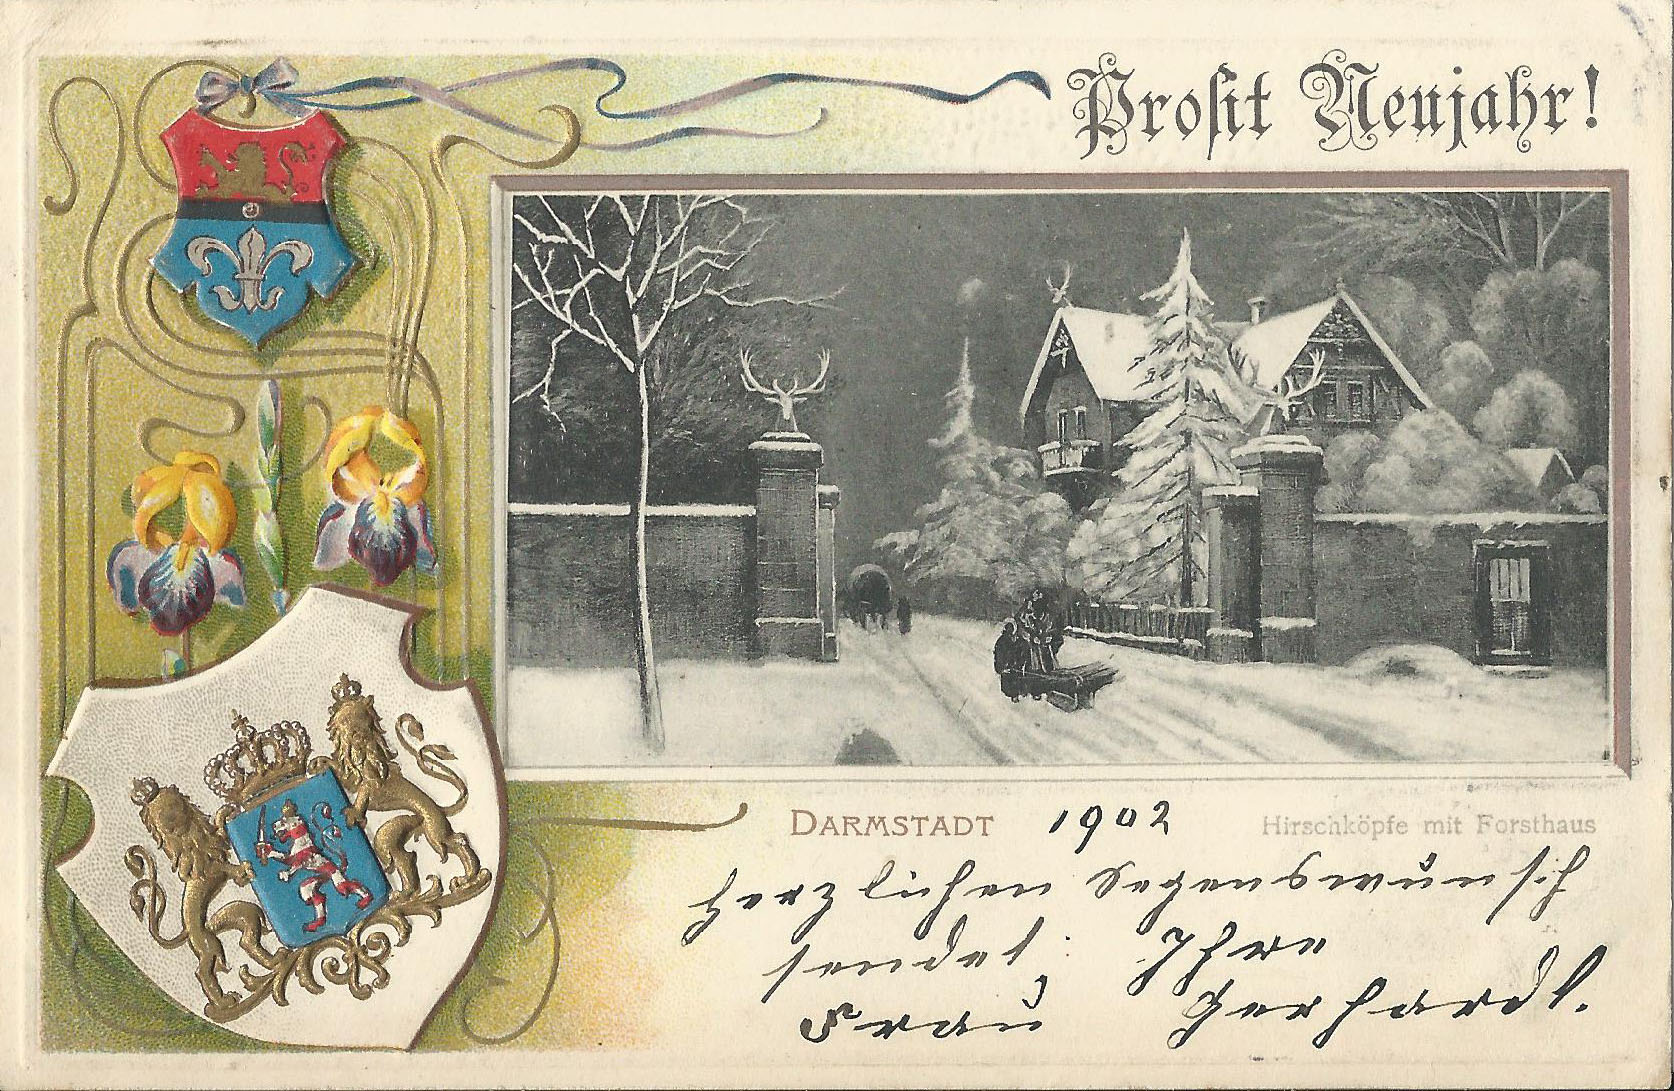 Prosit Neujahr!
DARMSTADT 1902 Hirschköpfe mit Forsthaus
Herzlichen Segenswunsch
sendet Ihre
Frau Gerhardt.